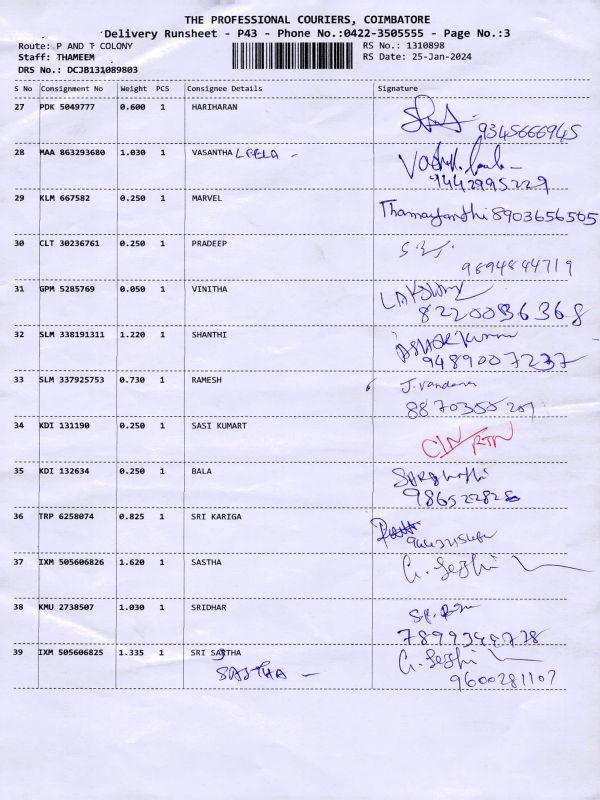 THE PROFESSIONAL COURIERS, COIMBATORE
Delivery Runsheet - P43 - Phone No.:0422-3505555 - Page No.:3
Route: P AND T COLONY RS No.: 1310898
Staff: THAMEEM RS Date: 25-Jan-2024
DRS No.: DCJB131089803
S No Consignment No Weight PCS Consignee Details Signature
27 PDK 5049777 0.600 1 HARIHARAN
9345666945
28 MAA 863293680 1.030 1 VASANTHA LEELA -
9442995229
29 KLM 667582 0.250 1 MARVEL
Thamayanthi 8903656505
30 CLT 30236761 0.250 1 PRADEEP
9894844719
31 GPM 5285769 0.050 1 VINITHA
8220036368
32 SLM 338191311 1.220 1 SHANTHI
ASHOK Kumar
9489007237
33 SLM 337925753 0.730 1 RAMESH
J. Vandana
34 KDI 131190 0.250 1 SASI KUMART
35 KDI 132634 0.250 1 BALA
36 TRP 6258074 0.825 1 SRI KARIGA
37 IXM 505606826 1.620 1 SASTHA
38 KMU 2738507 1.030 1 SRIDHAR
39 IXM 505606825 1.335 1 SRI SASTHA
SASTHA -
9600281107